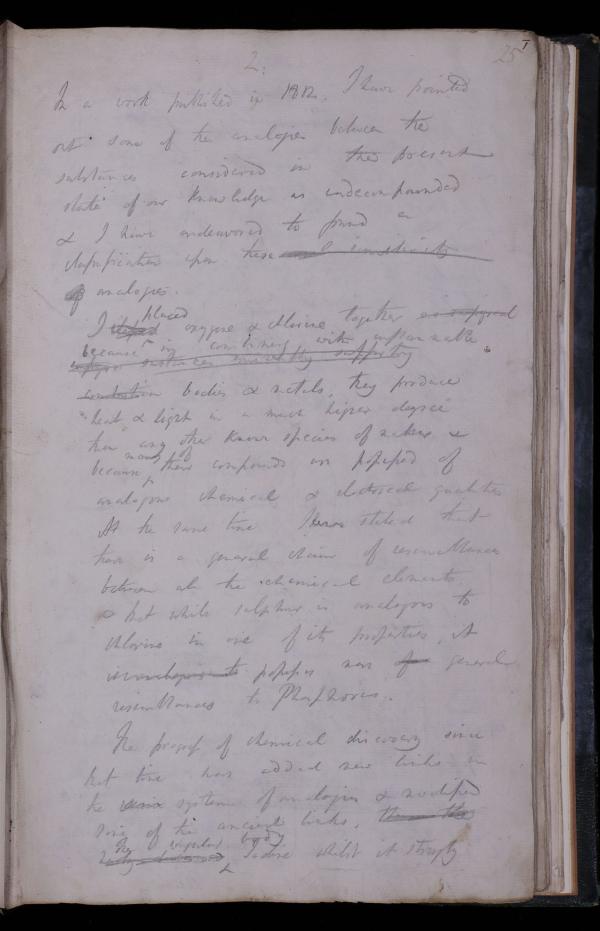 2.
25
In a work published in 1812, I have pointed
out some of the analogies between the
substances considered in the present
state of our knowledge as undecompounded
& I have endeavored to found a
classification upon these
of analogies.
I placed oxygene & chlorine together
because in combining with inflammable
substances supporting
bodies & metals, they produce
heat & light in a much higher degree
than any other known species of matter &
because many of their compounds are possessed of
analogous chemical & electrical qualities
At the same time I stated that
there is a general chain of resemblances
between all the chemical elements
& that while sulphur is analogous to
chlorine in one of its properties, it
is analogous to possesses more of general
resemblances to Phosphorus.
The progress of chemical discovery since
that time has added new links in
the systems of analogies & modified
some of the ancient links.
The singular body
Iodine whilst it strongly